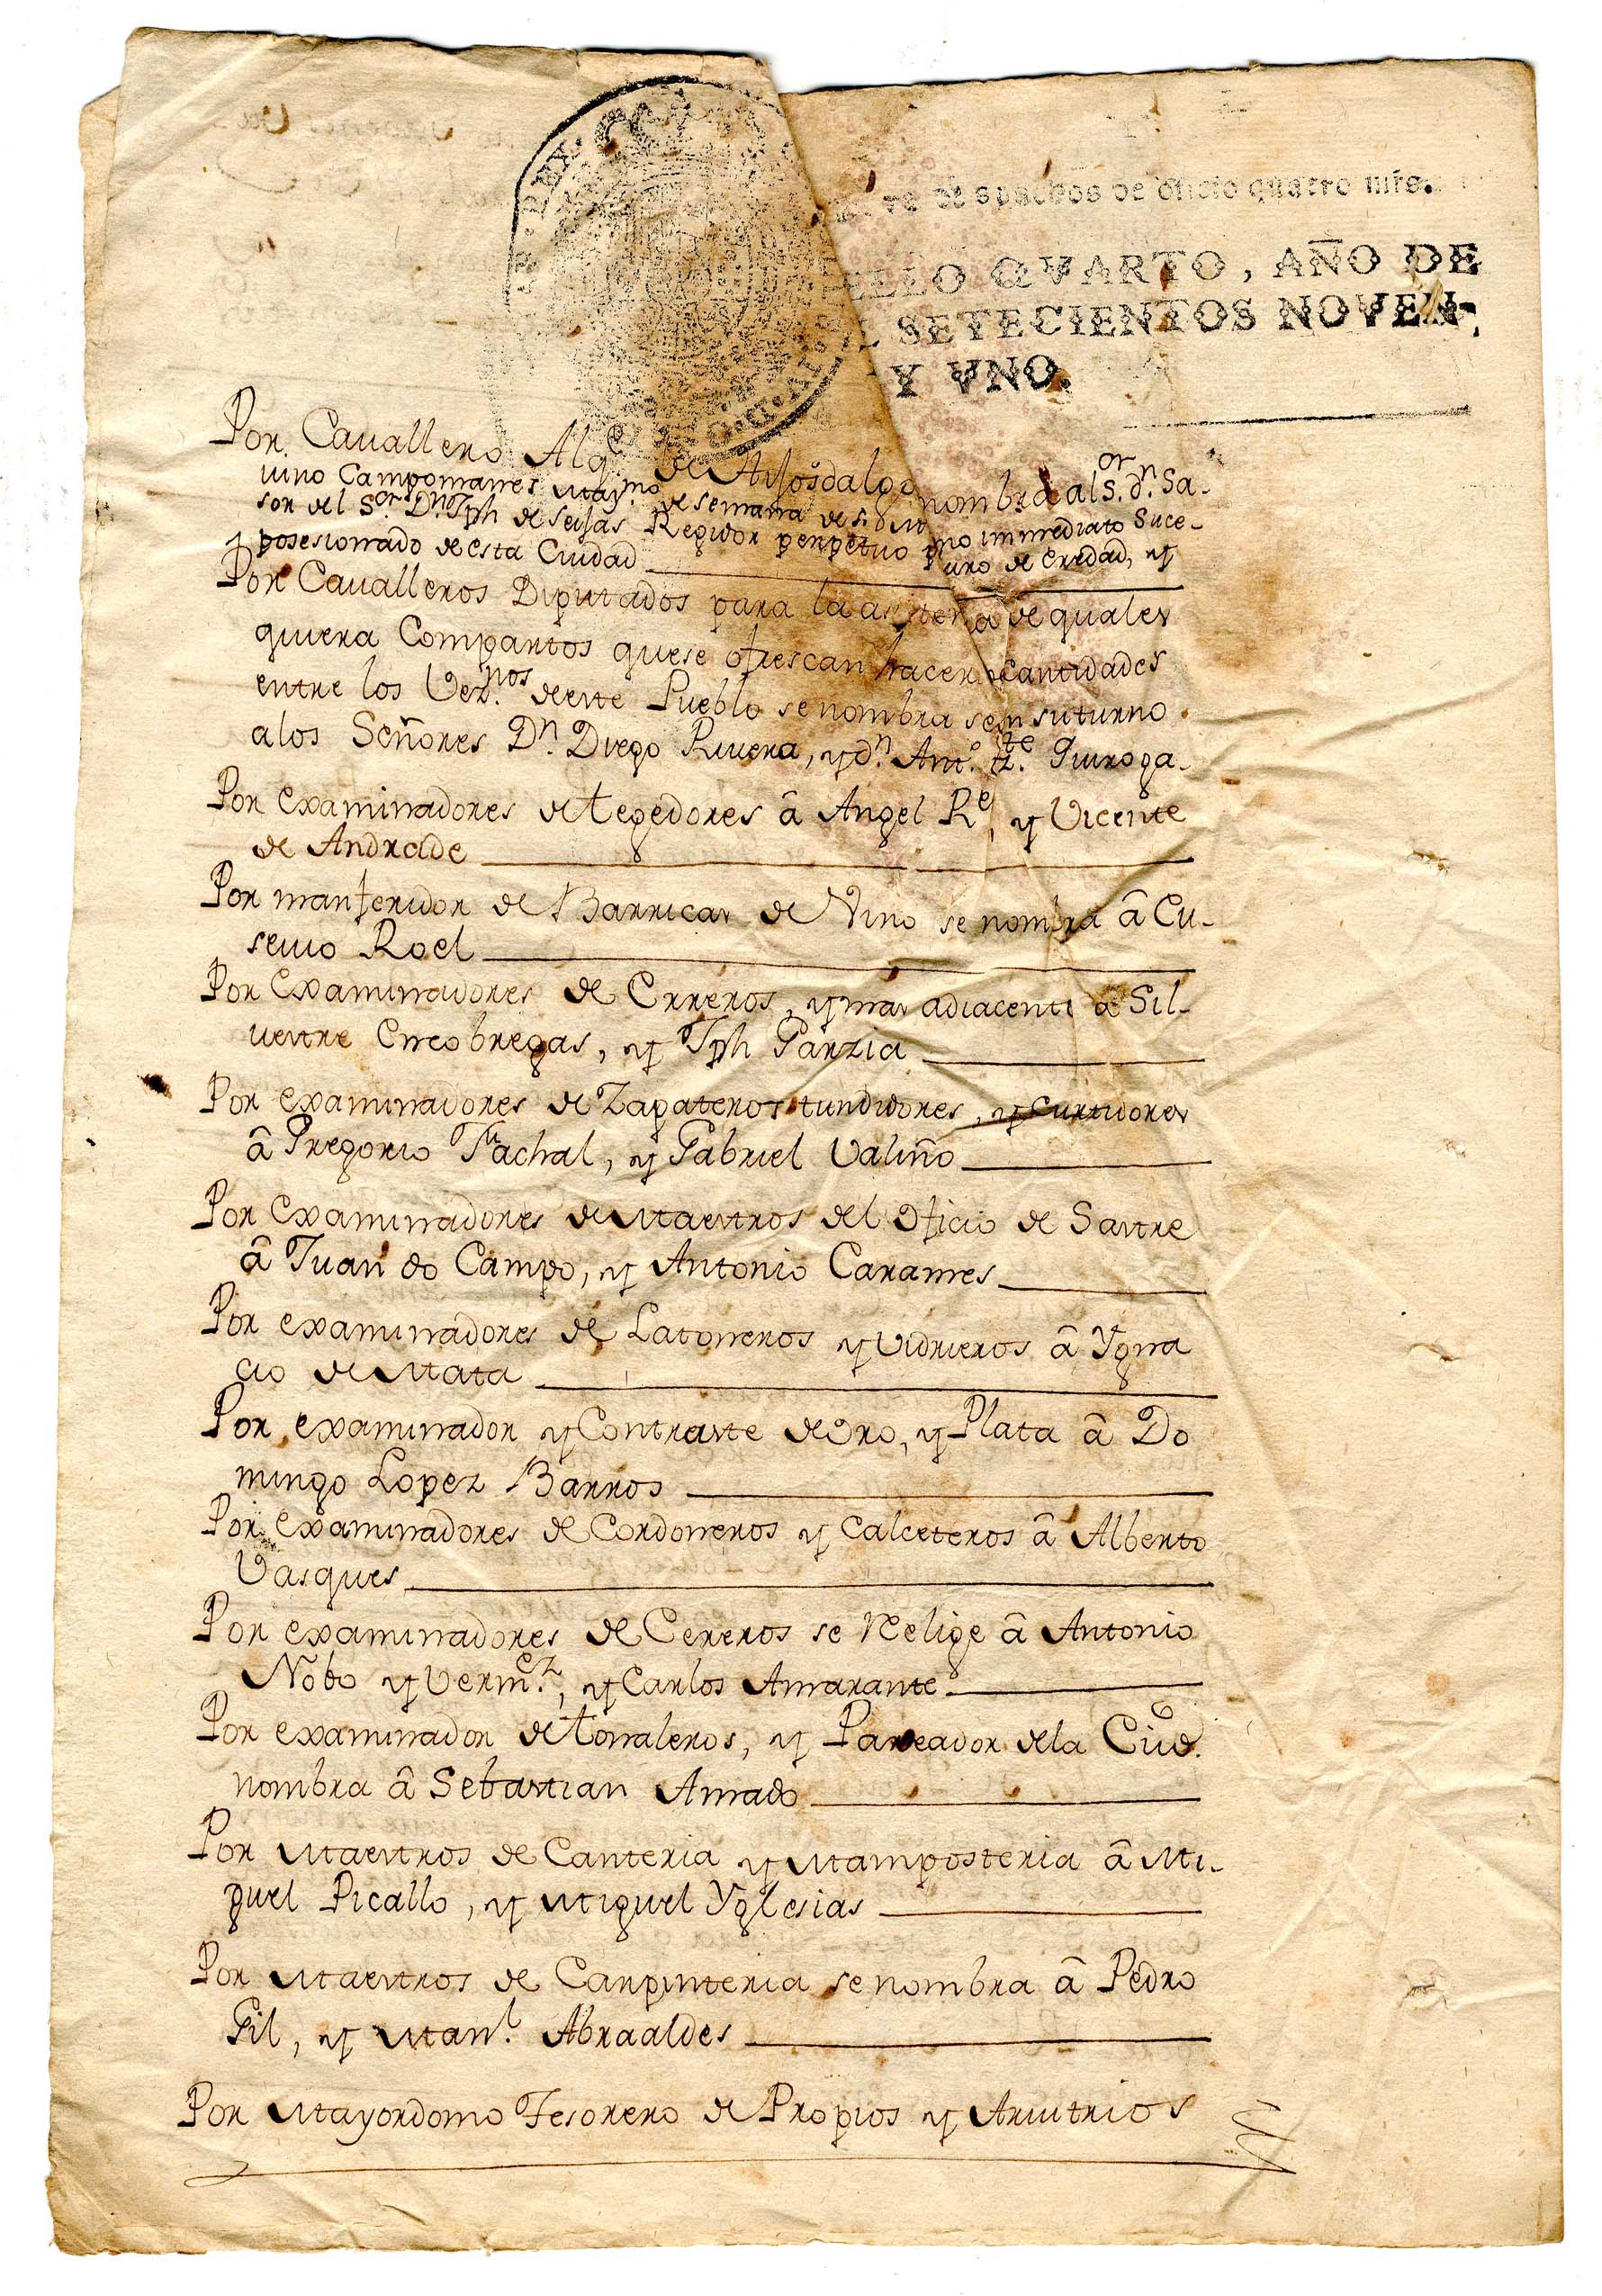 de spachos de oficio quatro mrs.
ELLO QVARTO, AÑO DE
L SETECIENTOS NOVEN-
Y VNO.
Por Cauallero Alg.e de Hijosdalgo nombra al S.or d.n Sa-
uino Campomanes May.mo de semana de S. M. immediato Suce-
sor del S.or D.n Jph de Seijas Regidor perpetuo de eredad, y
posesionado de esta Ciudad
Por Caualleros Diputados para la de quales
quiera Compartos quese ofrescan hacer de cantidades
entre los Vez.nos deeste Pueblo se nombra seg.n suturno
alos Señores D.n Diego Rivera, y d.n Ant.o Quiroga.
Por examinadores de tegedores â Angel R.e, y Vicente
de Andrade
Por manferidor de Barricas de Vino se nombra â Eu-
sevio Roel
Por Examinadores de Erreros, y mas adiacente â Sil-
uestre Encobregas, y Jph Garzia
Por examinadores de Zapateros tundidores, y Curtidores
â Gregorio Fachal, y Gabriel Valiño
Por Examinadores de Maestros del Oficio de Sastre
â Juan do Campo, y Antonio Carames
Por examinadores de Latoneros y Vidrieros â Ygna
cio de Mata
Por examinador y Contraste de Oro, y Plata â Do
mingo Lopez Barros
Por examinadores de Cordoneros y Calceteros â Alberto
Vasques
Por examinadores de Cereros se Relige â Antonio
Nobo y Verm.ez, y Carlos Amarante
Por examinador de tonaleros, y Pareador dela Ciud.
nombra â Sebastian Amado
Por Maestros de Canteria y Mamposteria â Mi-
guel Picallo, y Miguel Yglesias
Por Maestros de Carpinteria se nombra â Pedro
Gil, y Man.l Abraaldes
Por Mayordomo Tesorero de Propios y Arvitrios